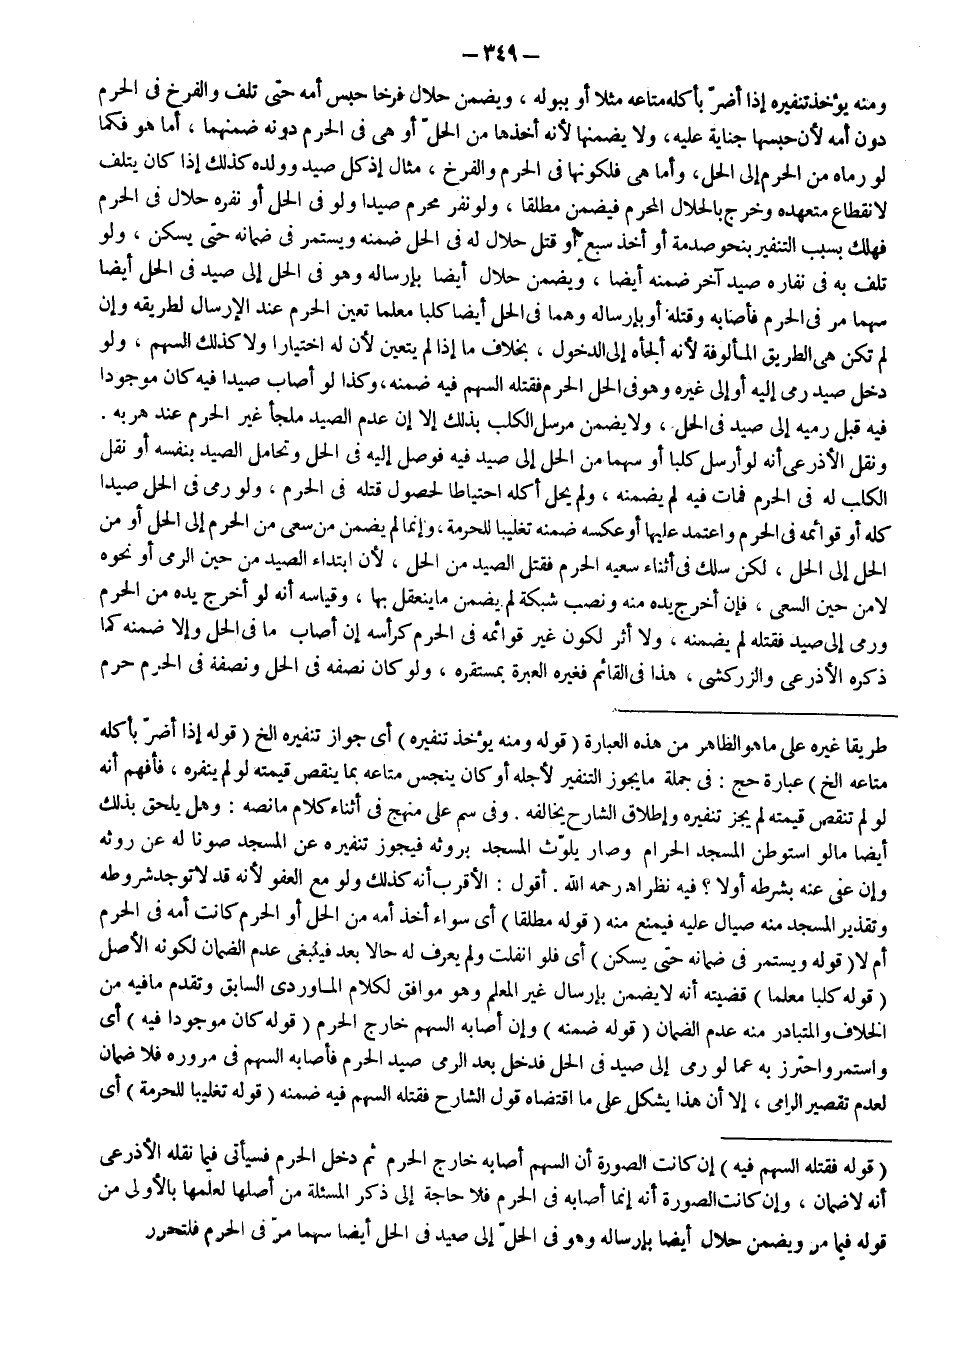 – ٣٤٩ –
ومنه يؤخذ تنفيره إذا أضرّ بأكله متاعه مثلا أو ببوله ، ويضمن حلال فرخا حبس أمه حتّى تلف والفرخ فى الحرم
دون أمه لأن حبسها جناية عليه، ولا يضمنها لأنه أخذها من الحلّ أو هى فى الحرم دونه ضمنهما ، أما هو فكما
لو رماه من الحرم إلى الحل، وأما هى فلكونها فى الحرم والفرخ ، مثال إذ كل صيد وولده كذلك إذا كان يتلف
لانقطاع متعهده وخرج بالحلال المحرم فيضمن مطلقا ، ولو نفر محرم صيدا ولو فى الحل أو نفره حلال فى الحرم
فهلك بسبب التنفير بنحو صدمة أو أخذ سبع أو قتل حلال له فى الحل ضمنه ويستمر فى ضمانه حتّى يسكن ، ولو
تلف به فى نفاره صيد آخر ضمنه أيضا ، ويضمن حلال أيضا بإرساله وهو فى الحل إلى صيد فى الحل أيضا
سهما مر فى الحرم فأصابه وقتله أو بإرساله وهما فى الحل أيضا كلبا معلما تعين الحرم عند الإرسال لطريقه وإن
لم تكن هى الطريق المألوفة لأنه ألجأه إلى الدخول ، بخلاف ما إذا لم يتعين لأن له اختيارا ولا كذلك السهم ، ولو
دخل صيد رمى إليه أو إلى غيره وهو فى الحل الحرم فقتله السهم فيه ضمنه، وكذا لو أصاب صيدا فيه كان موجودا
فيه قبل رميه إلى صيد فى الحل ، ولا يضمن مرسل الكلب بذلك إلا إن عدم الصيد ملجأ غير الحرم عند هربه .
ونقل الأذرعى أنه لو أرسل كلبا أو سهما من الحل إلى صيد فيه فوصل إليه فى الحل وتحامل الصيد بنفسه أو نقل
الكلب له فى الحرم فمات فيه لم يضمنه ، ولم يحل أكله احتياطا لحصول قتله فى الحرم ، ولو رمى فى الحل صيدا
كله أو قوائمه فى الحرم واعتمد عليها أو عكسه ضمنه تغليبا للحرمة ، وإنما لم يضمن من سعى من الحرم إلى الحل أو من
الحل إلى الحل ، لكن سلك فى أثناء سعيه الحرم فقتل الصيد من الحل ، لأن ابتداء الصيد من حين الرمى أو نحوه
لا من حين السعى ، فإن أخرج يده منه ونصب شبكة لم يضمن ما ينعقل بها ، وقياسه أنه لو أخرج يده من الحرم
ورمى إلى صيد فقتله لم يضمنه ، ولا أثر لكون غير قوائمه فى الحرم كرأسه إن أصاب ما فى الحل وإلا ضمنه كما
ذكره الأذرعى والزركشى ، هذا فى القائم فغيره العبرة بمستقره ، ولو كان نصفه فى الحل ونصفة فى الحرم حرم
طريقا غيره على ما هو الظاهر من هذه العبارة ( قوله ومنه يؤخذ تنفيره ) أى جواز تنفيره الخ ( قوله إذا أضرّ بأكله
متاعه الخ ) عبارة حج : فى جملة ما يجوز التنفير لأجله أو كان ينجس متاعه بما ينقص قيمته لو لم ينفره ، فأفهم أنه
لو لم تنقص قيمته لم يجز تنفيره وإطلاق الشارح يخالفه . وفى سم على منهج فى أثناء كلام مانصه : وهل يلحق بذلك
أيضا مالو استوطن المسجد الحرام وصار يلوّث المسجد بروثه فيجوز تنفيره عن المسجد صونا له عن روثه
وإن عفى عنه بشرطه أولا ؟ فيه نظر اهـ رحمه الله . أقول : الأقرب أنه كذلك ولو مع العفو لأنه قد لا توجد شروطه
وتقذير المسجد منه صيال عليه فيمنع منه ( قوله مطلقا ) أى سواء أخذ أمه من الحل أو الحرم كانت أمه فى الحرم
أم لا ( قوله ويستمر فى ضمانه حتّى يسكن ) أى فلو انفلت ولم يعرف له حالا بعد فينبغى عدم الضمان لكونه الأصل
( قوله كلبا معلما ) قضيته أنه لا يضمن بإرسال غير المعلم وهو موافق لكلام الماوردى السابق وتقدم مافيه من
الخلاف والمتبادر منه عدم الضمان ( قوله ضمنه ) وإن أصابه السهم خارج الحرم ( قوله كان موجودا فيه ) أى
واستمر واحترز به عما لو رمى إلى صيد فى الحل فدخل بعد الرمى صيد الحرم فأصابه السهم فى مروره فلا ضمان
لعدم تقصير الرامى ، إلا أن هذا يشكل على ما اقتضاه قول الشارح فقتله السهم فيه ضمنه ( قوله تغليبا للحرمة ) أى
( قوله فقتله السهم فيه ) إن كانت الصورة أن السهم أصابه خارج الحرم ثم دخل الحرم فسيأتى فيما نقله الأذرعى
أنه لاضمان ، وإن كانت الصورة أنه إنما أصابه فى الحرم فلا حاجة إلى ذكر المسئلة من أصلها لعلمها بالأولى من
قوله فيما مر ويضمن حلال أيضا بإرساله وهو فى الحلّ إلى صيد فى الحل أيضا سهما مرّ فى الحرم فلتحرر